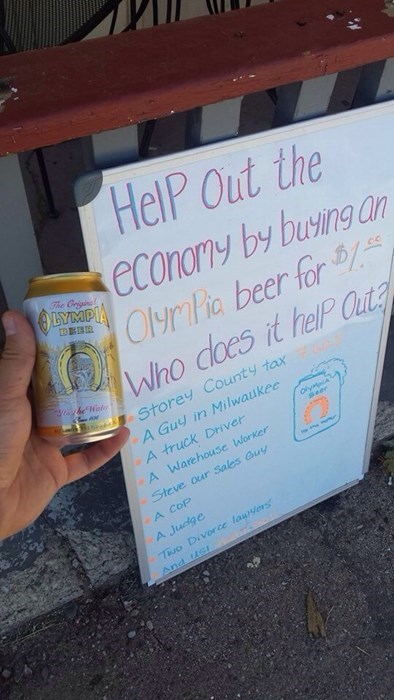 HelP Out the
economy by buying an
OlymPia beer for $1.00
Who does it helP Out?
Storey County tax
A Guy in Milwaukee
A truck Driver
A Warehouse Worker
Steve our Sales Guy
A COP
A Judge
Two Divorce lawyers
And us!
Olympia
Beer
The Original
OLYMPIA
BEER
It's the Water